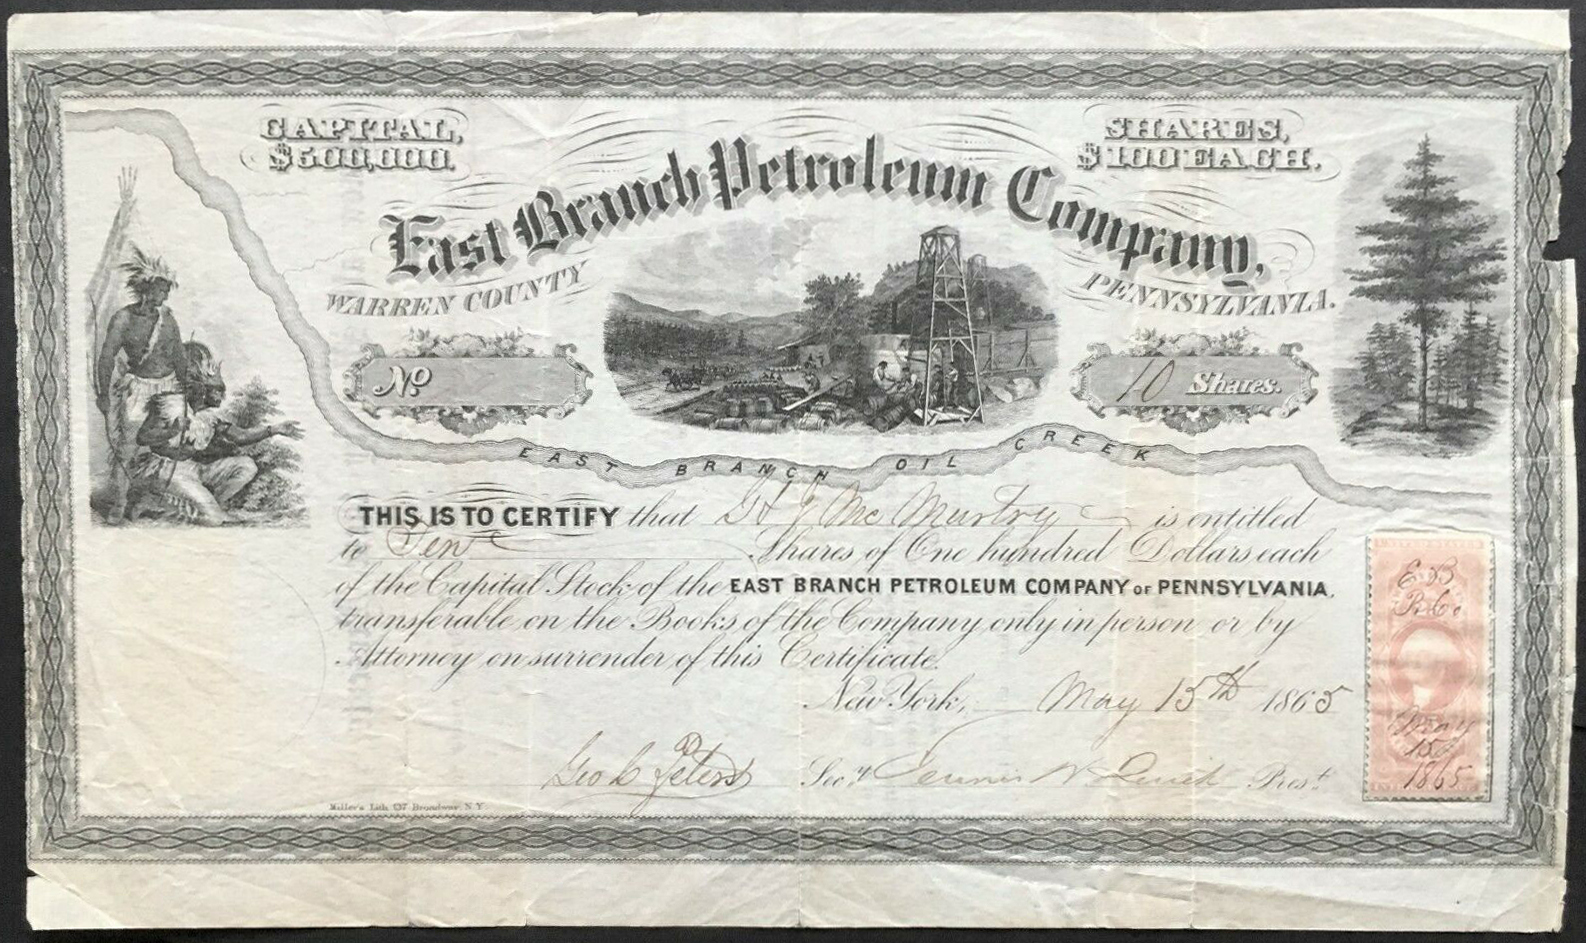 CAPITAL,
$500,000.
SHARES,
$100 EACH.
East Branch Petroleum Company,
WARREN COUNTY
PENNSYLVANIA.
No
10 Shares.
EAST BRANCH OIL CREEK
THIS IS TO CERTIFY that G H J Mc Murtry is entitled
to Ten Shares of One hundred Dollars each
of the Capital Stock of the EAST BRANCH PETROLEUM COMPANY OF PENNSYLVANIA,
transferable on the Books of the Company only in person or by
Attorney on surrender of this Certificate.
New York, May 15th 1865
Geo C Peters Secy. Pres't.
Miller's Lith. 137 Broadway, N.Y.
E B
P. Co
May
15
1865